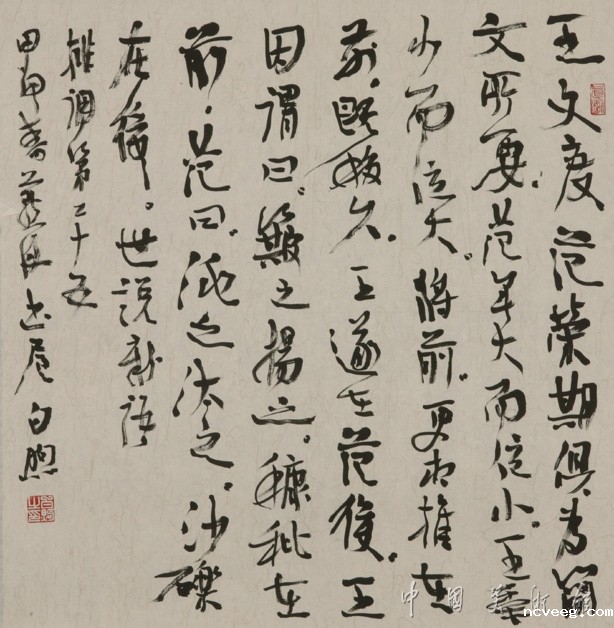 王文度范榮期俱为簡
文所要。范年大而位小。王年
小而位大。将前。更相推在
前。既移久。王遂在范後。王
因谓曰。簸之揚之。糠秕在
前。范曰。洮之汰之。沙礫
在後。世説新語
排調第二十五
甲申春 白煦
中國美術館
ncveeg.com